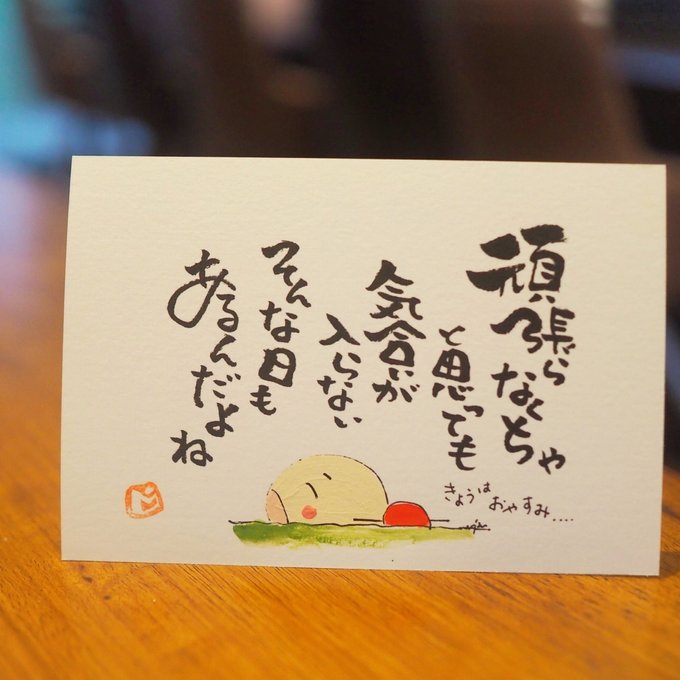 頑張らなくちゃ
と思っても
気合いが
入らない
そんな日も
あるんだよね
きょうは
おやすみ....